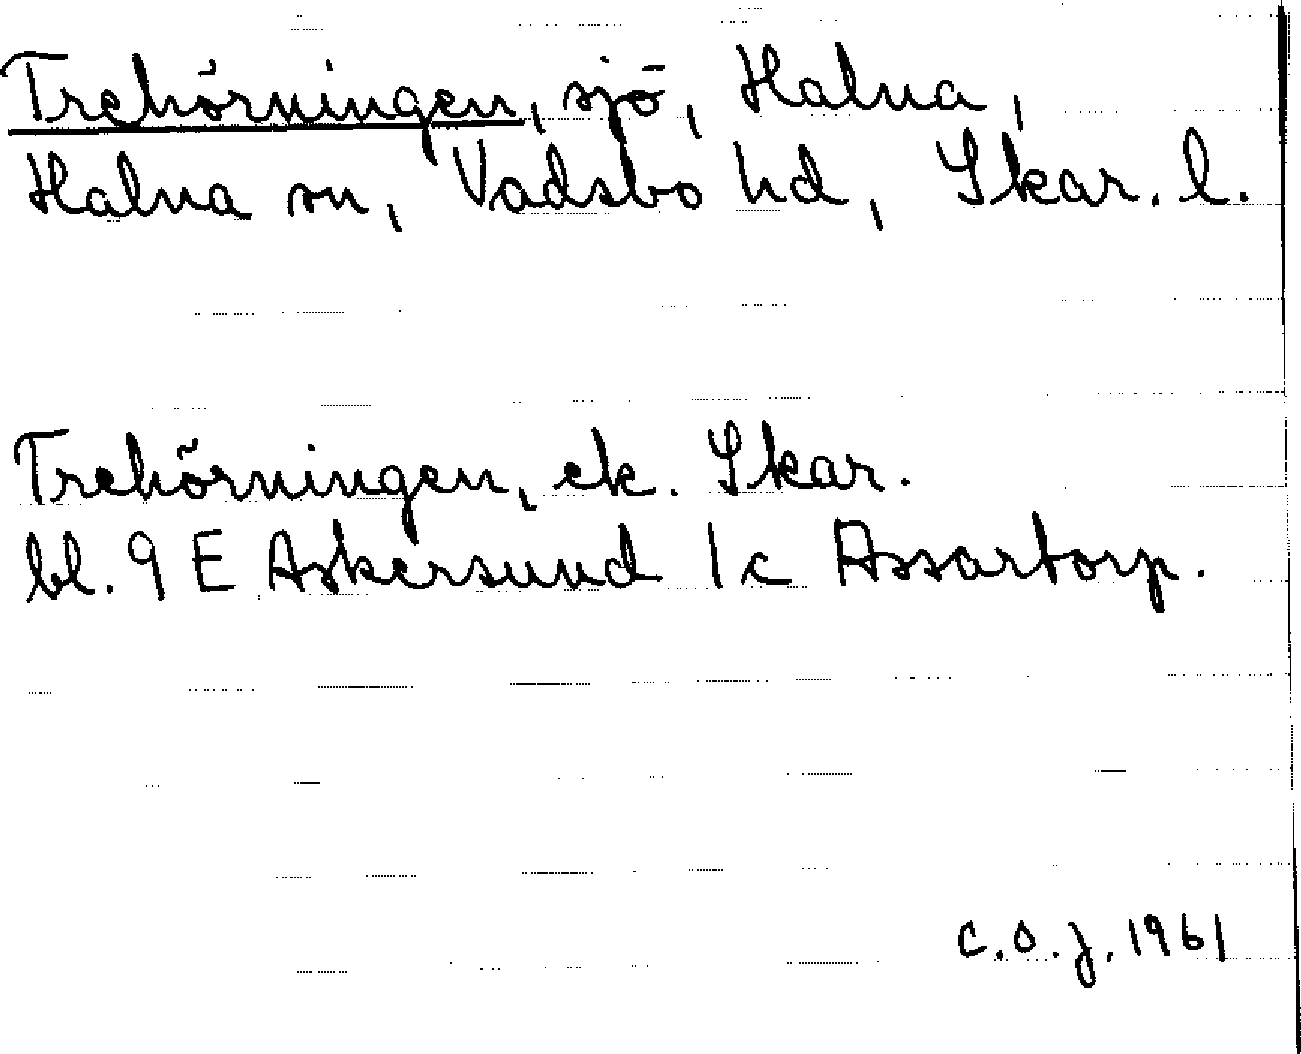 Trehörningen, sjö, Halna,
Halna sn, Vadsbo hd, Skar. l.
Trehörningen, ek. Skar.
bl. 9 E Askersund 1c Assartorp.
C.O.J. 1961